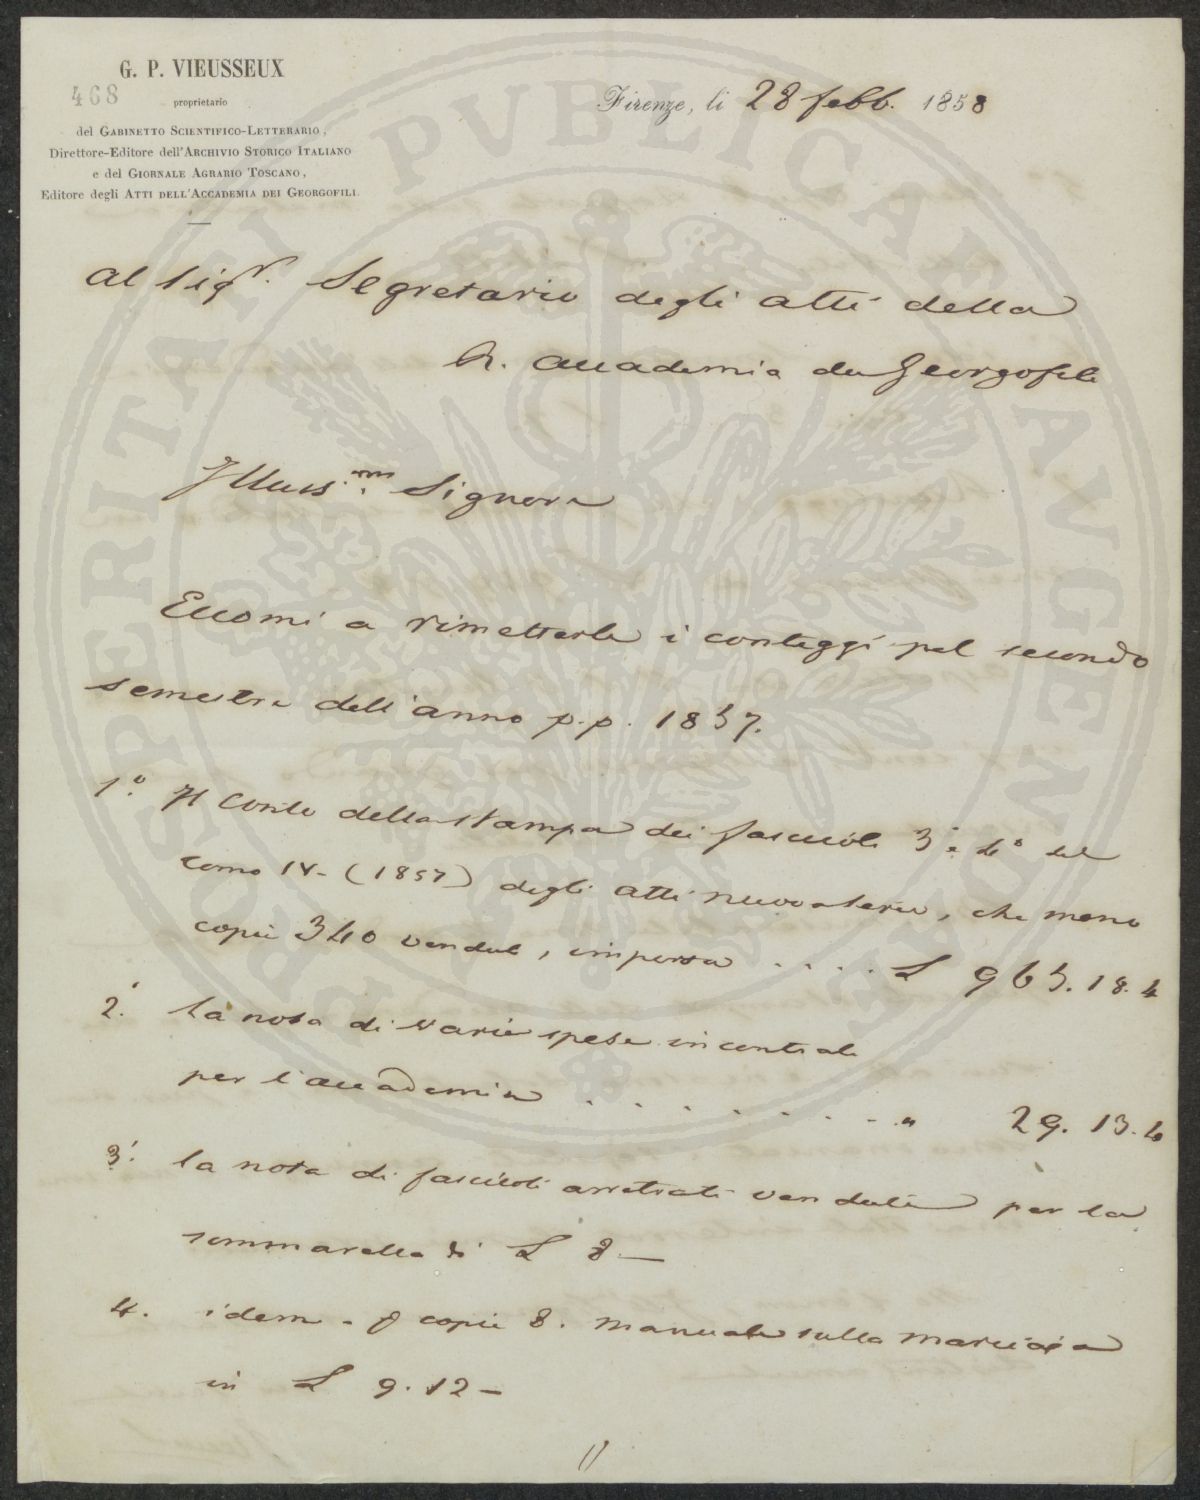 G. P. VIEUSSEUX
468
proprietario
del GABINETTO SCIENTIFICO-LETTERARIO,
Direttore-Editore dell'ARCHIVIO STORICO ITALIANO
e del GIORNALE AGRARIO TOSCANO,
Editore degli ATTI DELL'ACCADEMIA DEI GEORGOFILI.
Firenze, li 28 febb. 1858
Al Sigr. Segretario degli atti della
R. Accademia dei Georgofili
Illuss.mo Signore
Eccomi a rimetterle i conteggi pel secondo
semestre dell'anno p.p. 1857.
1.° Il Conto della stampa dei fascicoli 3° e 4° del
tomo IV - (1857) degli atti nuova serie, che meno
copie 340 vendute, importa . . . . £ 965. 18. 4
2.° la nota di varie spese incontrate
per l'accademia . . . . . . . . " 29. 13. 4
3.° la nota di fascicoli arretrati venduti per la
sommarella di £ 8 —
4. idem - p copie 8. manuale sulla
in £ 9. 12 —
PROSPERITATI PUBLICAE AVGENDAE